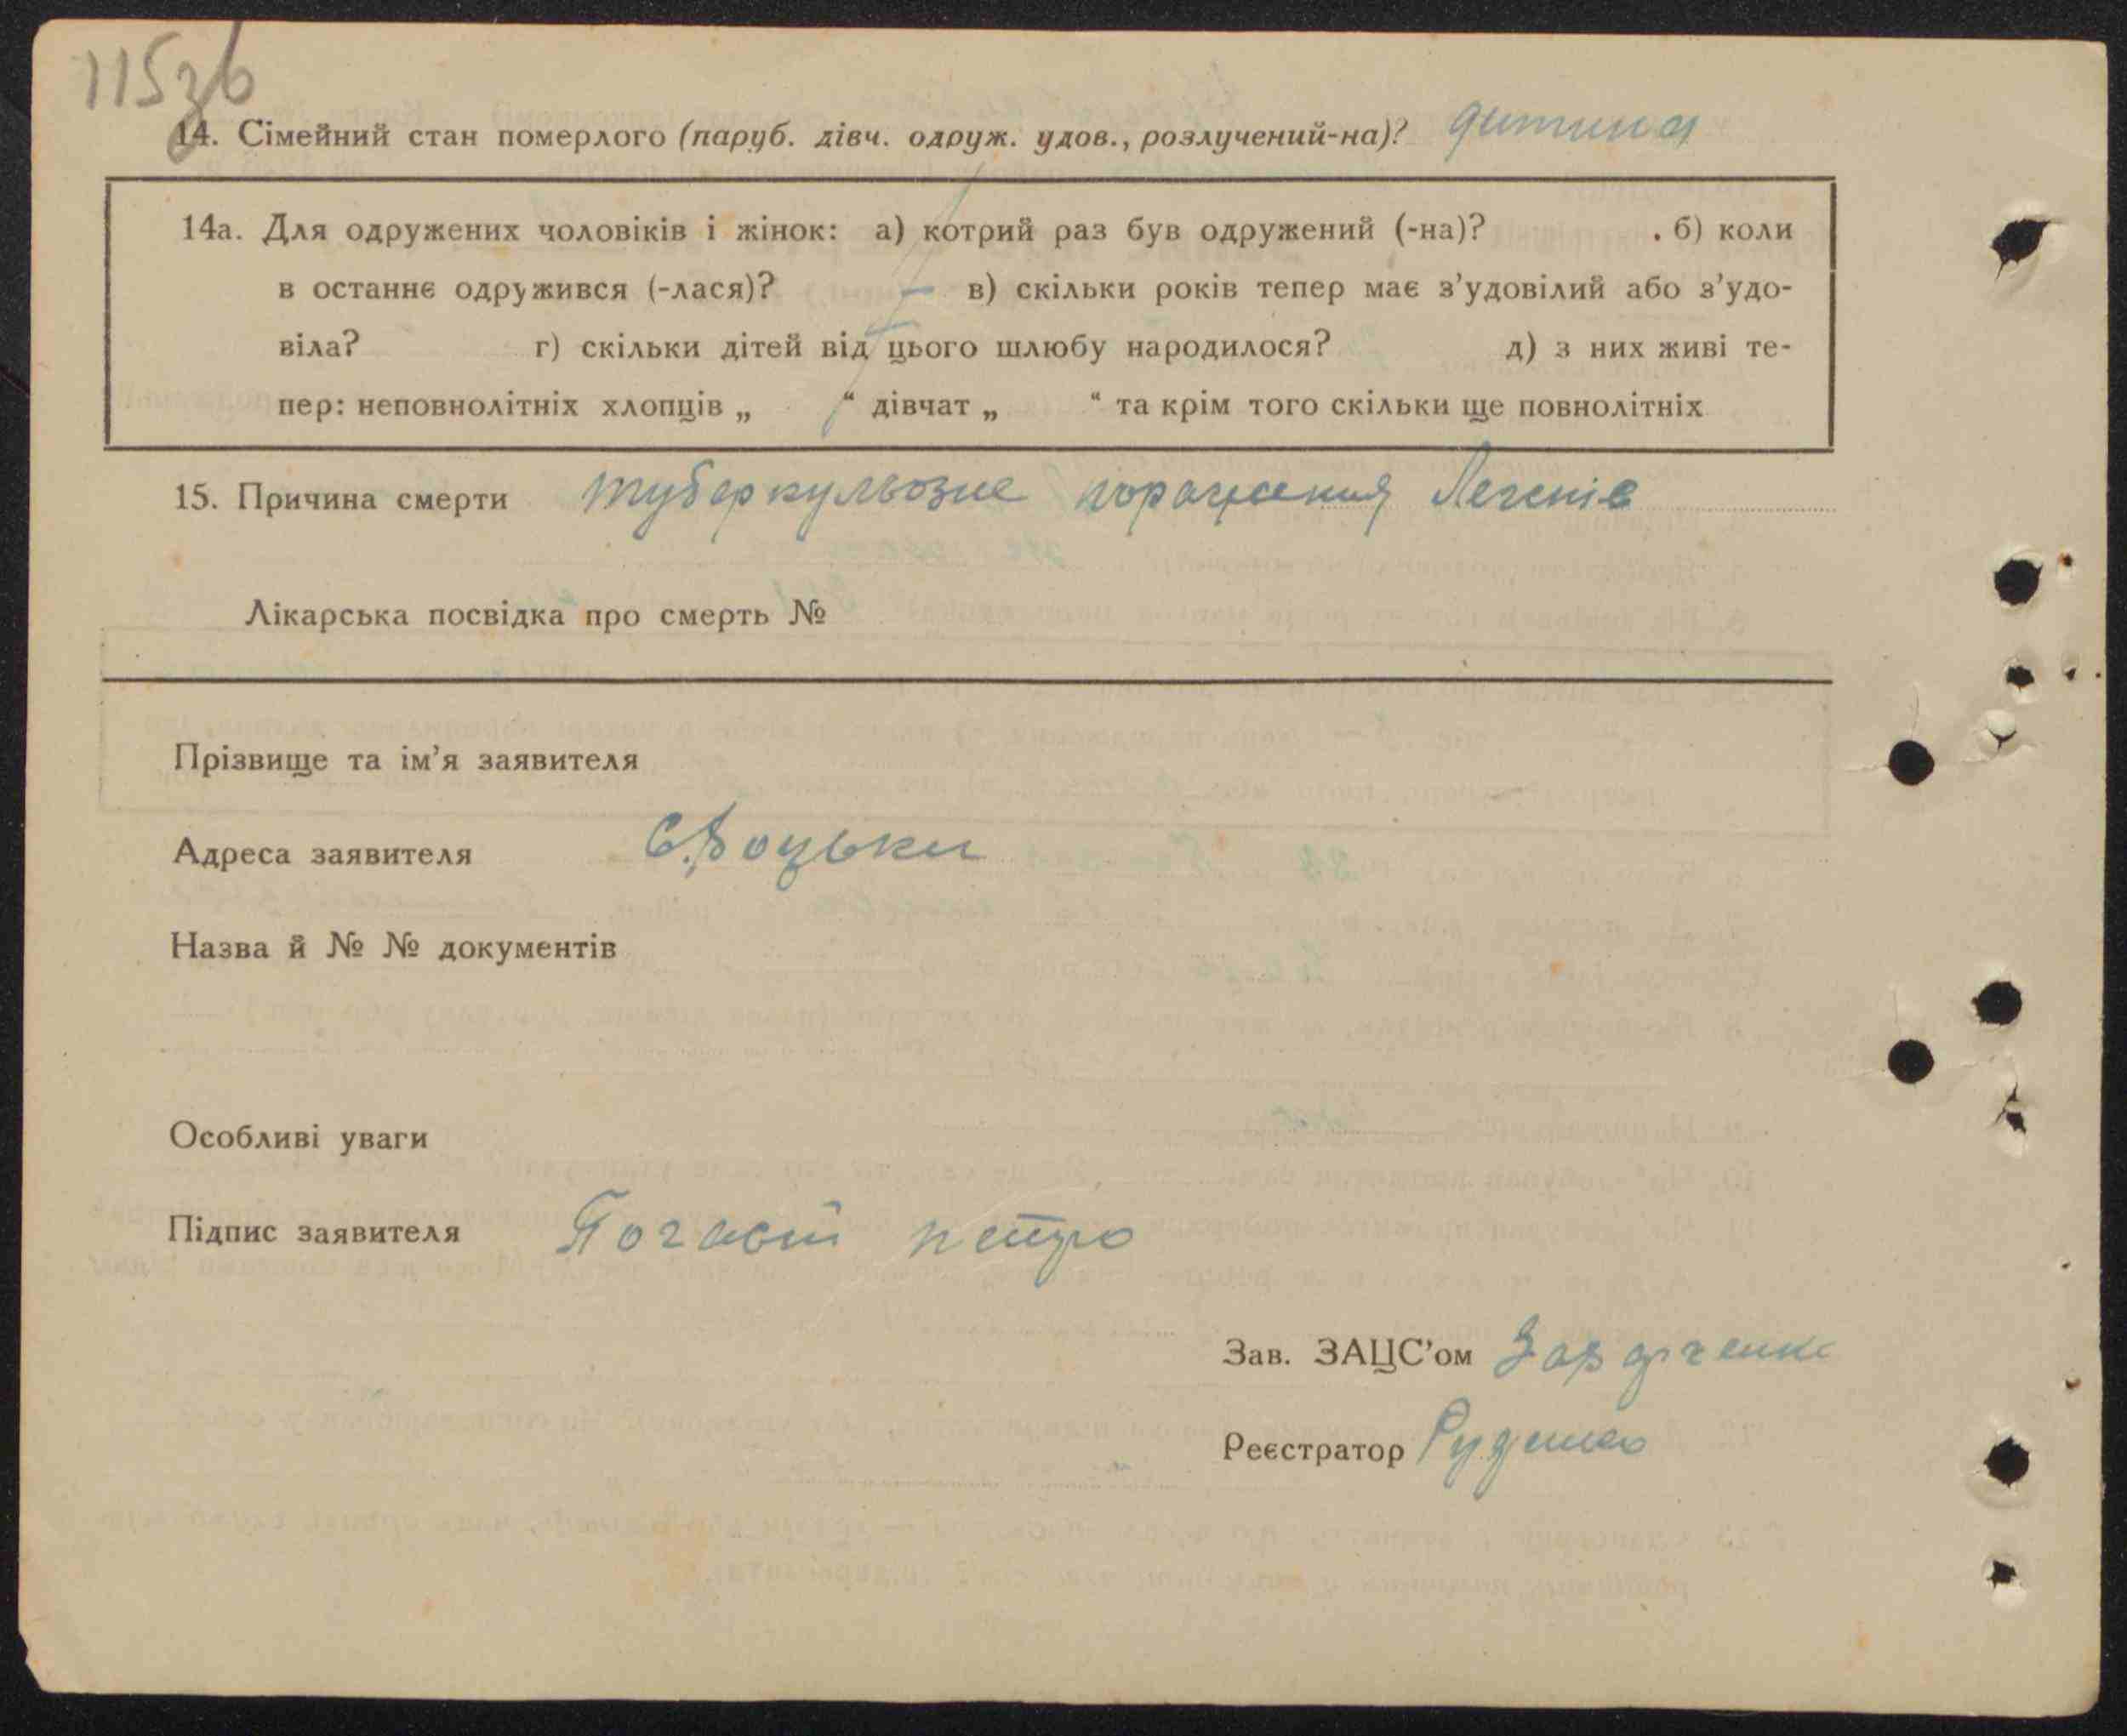 115зв
14. Сімейний стан померлого (паруб. дівч. одруж. удов., розлучений-на)? дитина
14а. Для одружених чоловіків і жінок: а) котрий раз був одружений (-на)? . б) коли
в останнє одружився (-лася)? — в) скільки років тепер має з’удовілий або з’удо-
віла? г) скільки дітей від цього шлюбу народилося? д) з них живі те-
пер: неповнолітніх хлопців „ “ дівчат „ “ та крім того скільки ще повнолітніх
15. Причина смерти туберкульозне поражения Легенів
Лікарська посвідка про смерть №
Прізвище та ім’я заявителя
Адреса заявителя с. Боцьки
Назва й № № документів
Особливі уваги
Підпис заявителя петро
Зав. ЗАЦС’ом
Реєстратор Руденко